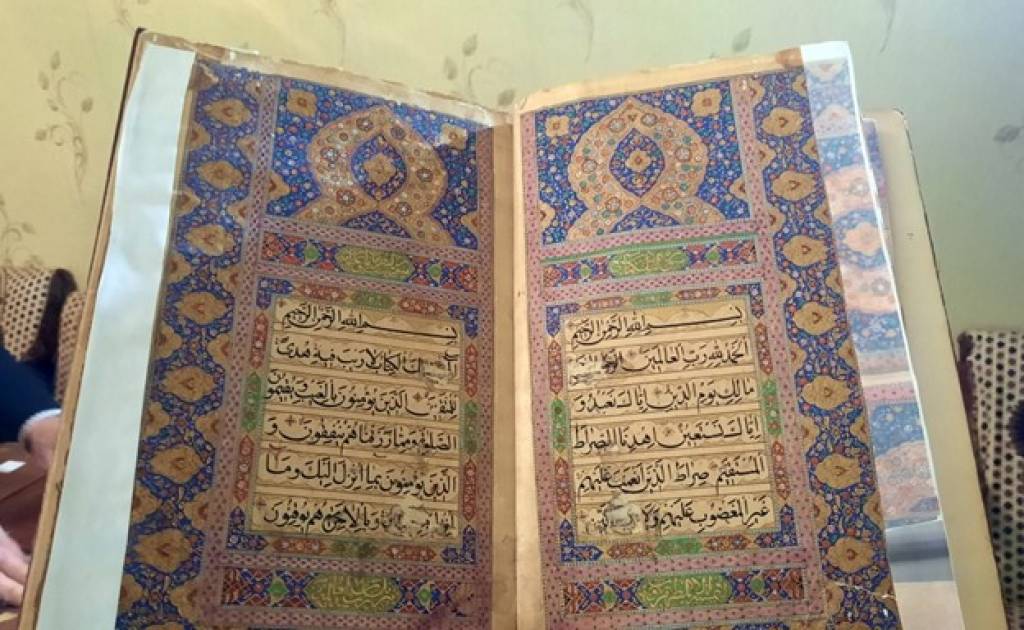 بسم الله الرحمن الرحيم
الحمد لله رب العالمين
مالك يوم الدين اياك نعبد و
اياك نستعين اهدنا الصراط
المستقيم صراط الذين انعمت عليهم
غير المغضوب عليهم ولا
بسم الله الرحمن الرحيم
الكتاب لا ريب فيه هدى
للمتقين الذين يؤمنون بالغيب ويقيمون
الصلوة ومما رزقناهم ينفقون و
الذين يؤمنون بما انزل اليك وما
وبالاخرة هم يوقنون